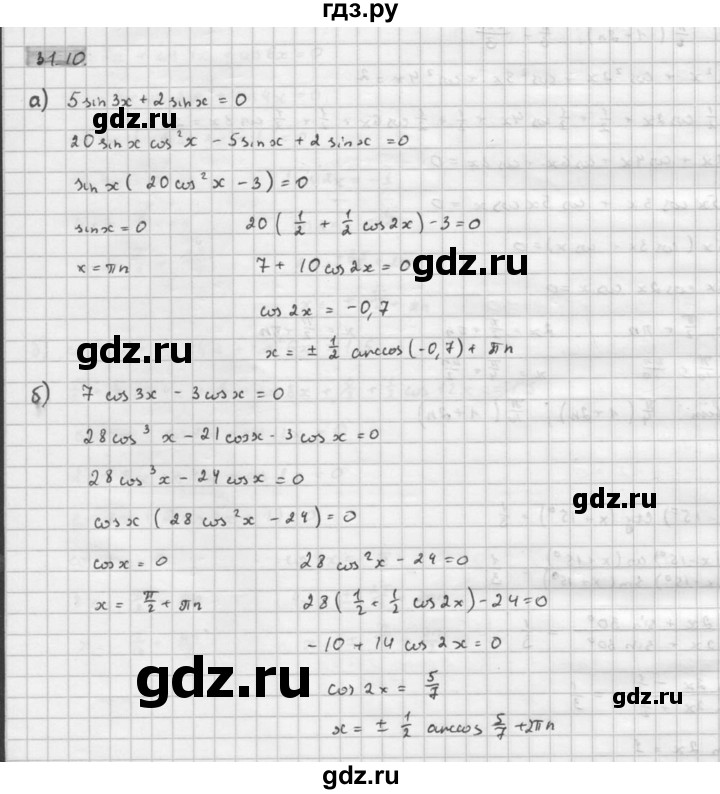 гдз.ру
31.10.
а) 5 sin 3x + 2 sin x = 0
gdz.ru
20 sin x cos²x - 5 sin x + 2 sin x = 0
sin x ( 20 cos²x - 3 ) = 0
sin x = 0 20 ( 1/2 + 1/2 cos 2x ) - 3 = 0
x = πn 7 + 10 cos 2x = 0
gdz.ru
cos 2x = -0,7
gdz.ru
x = ± 1/2 arccos (-0,7) + πn
б) 7 cos 3x - 3 cos x = 0
28 cos³ x - 21 cos x - 3 cos x = 0
28 cos³ x - 24 cos x = 0
gdz.ru
cos x ( 28 cos²x - 24 ) = 0
cos x = 0 28 cos²x - 24 = 0
x = π/2 + πn 28 ( 1/2 + 1/2 cos 2x ) - 24 = 0
-10 + 14 cos 2x = 0
gdz.ru
cos 2x = 5/7
gdz.ru
x = ± 1/2 arccos 5/7 + 2πn
gdz.ru